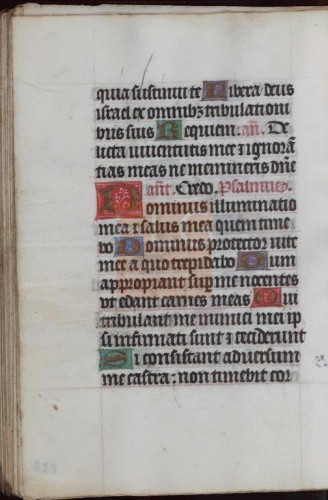 quia sustinui te Libera deus
israel ex omnibꝫ tribulationi
bus suis Requiem. añ. De
licta iuuentutis mee ⁊ ignorā
tias meas ne memineris dñe
añt. Credo. Psalmus.
Dominus illuminatio
mea ⁊ salus mea quem time
bo Dominus protector vite
mee a quo trepidabo Dum
appropiant sup me nocentes
vt edant carnes meas Qui
tribulant me inimici mei ip
si infirmati sunt ⁊ ceciderunt
Si consistant aduersum
me castra: non timebit cor